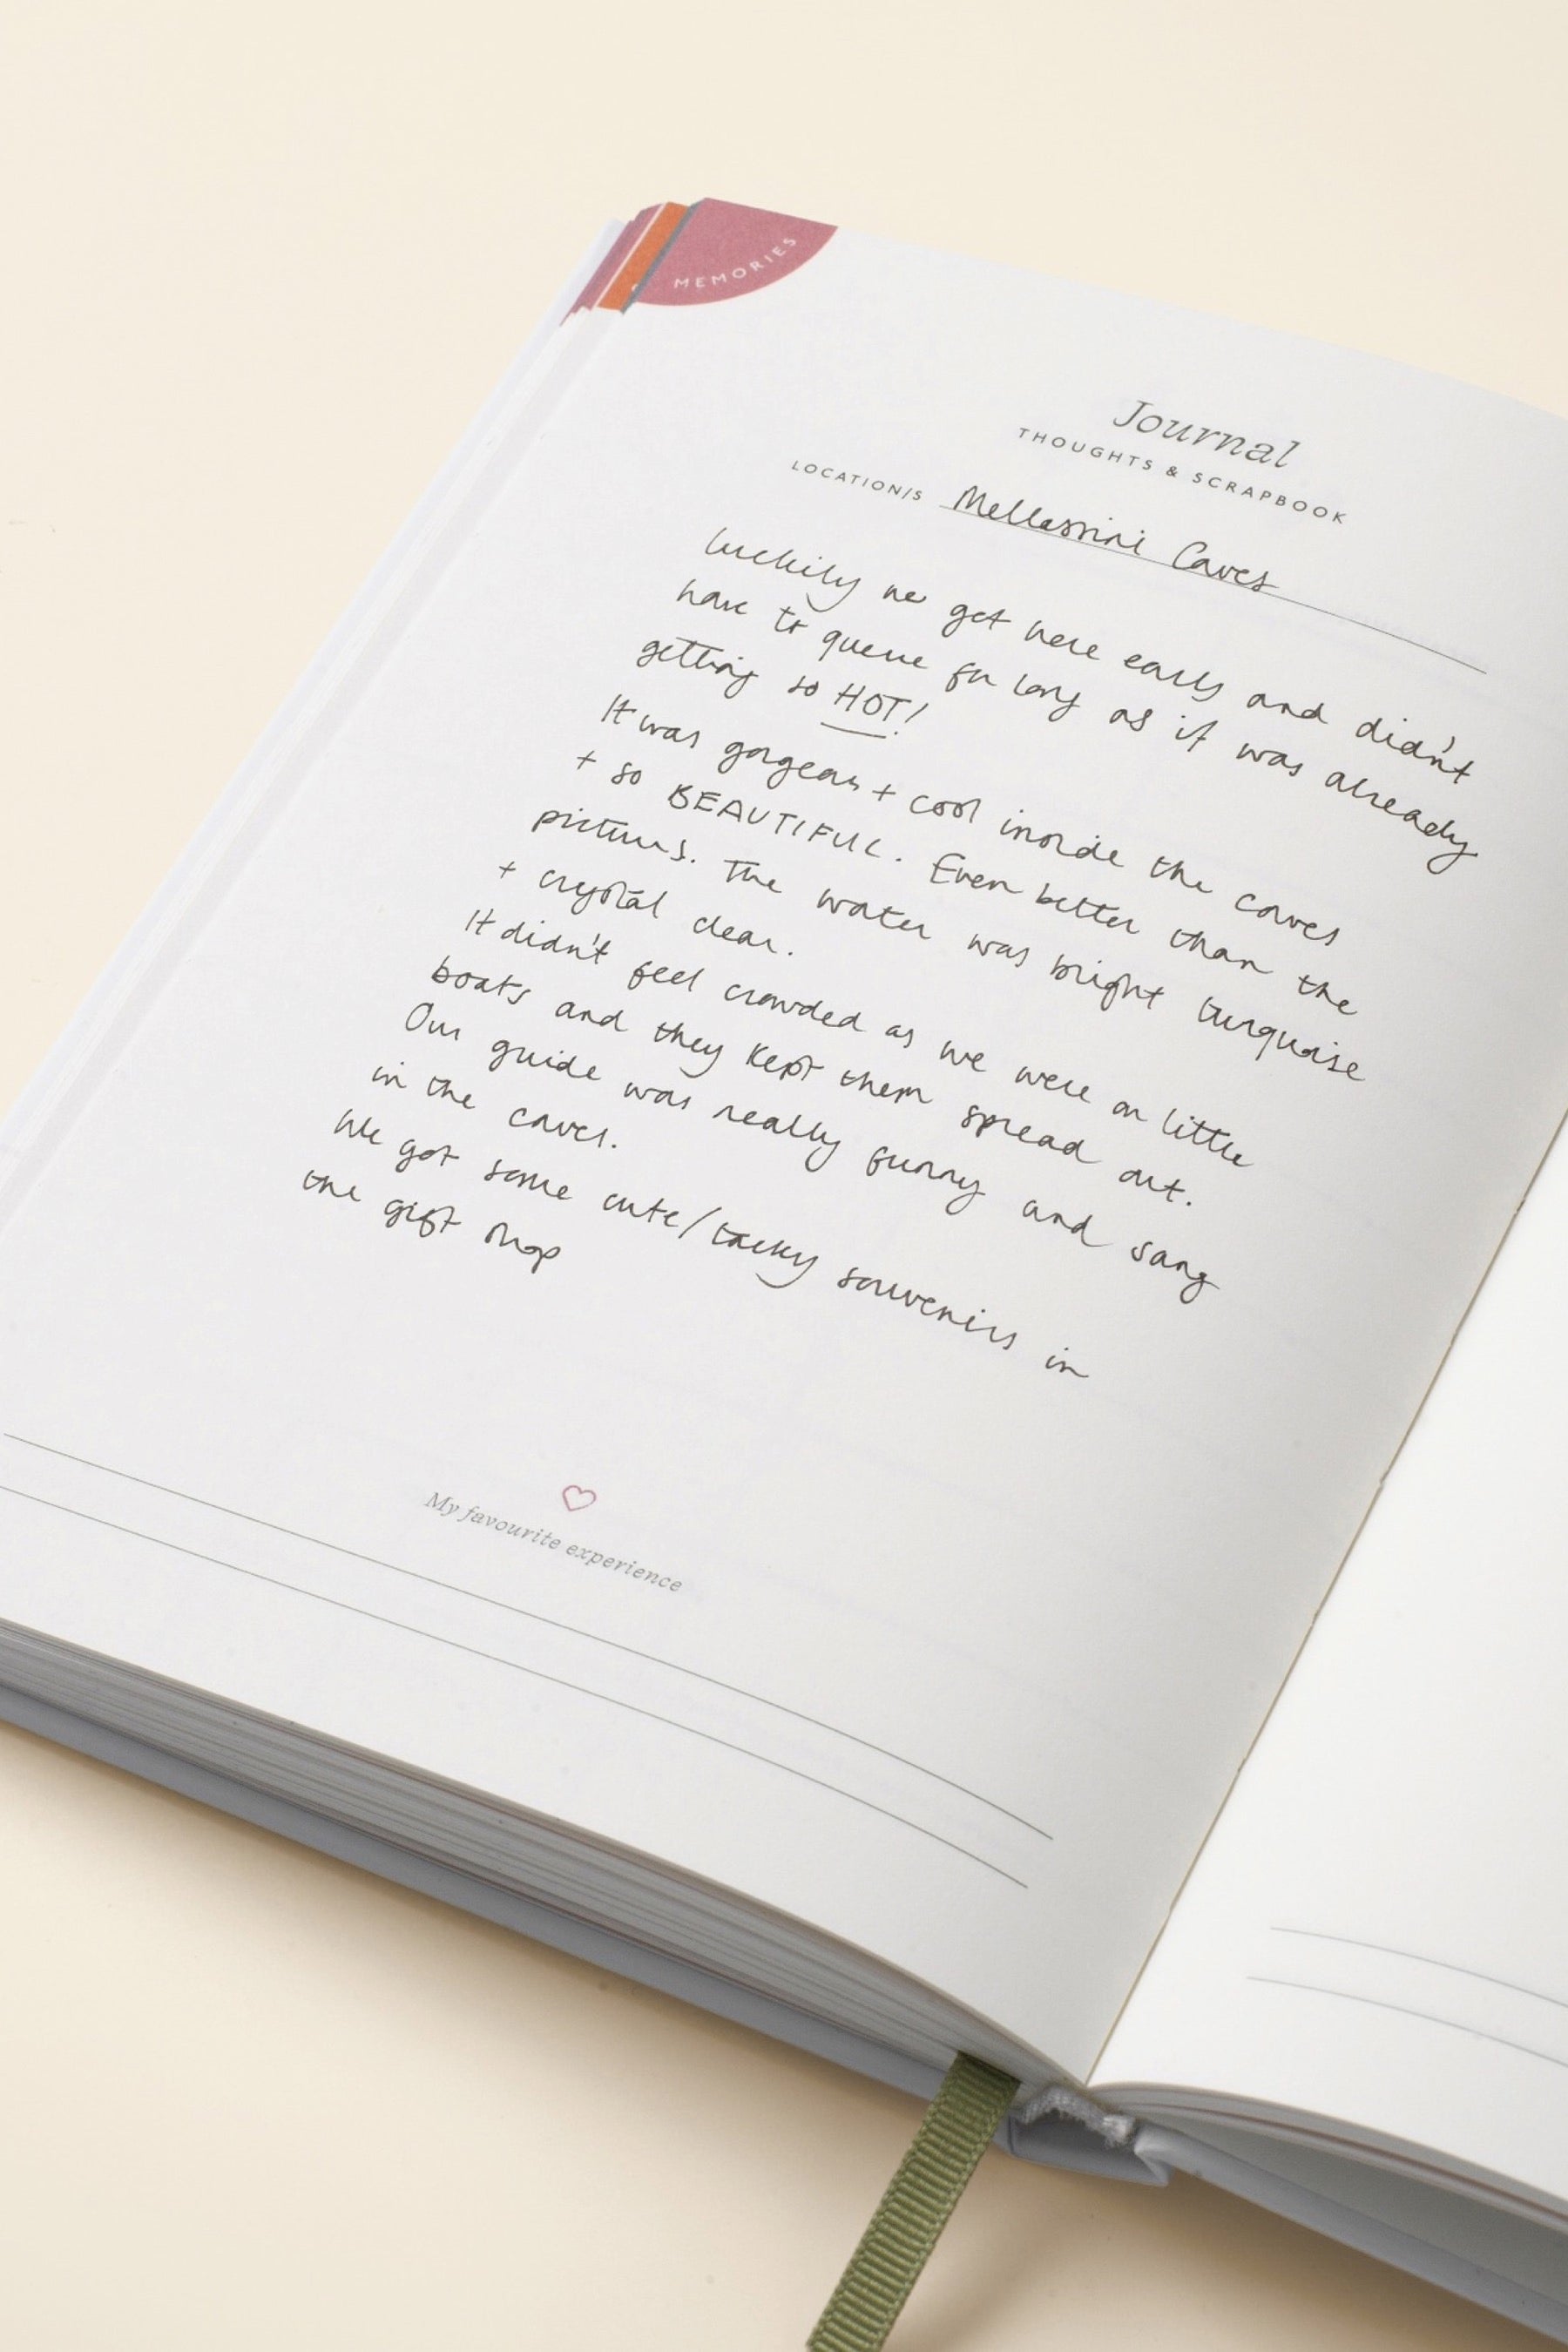 MEMORIES
Journal
THOUGHTS & SCRAPBOOK
LOCATION/S Mellassini Caves
luckily we got here early and didn't
have to queue for long as it was already
getting so HOT!
It was gorgeous + cool inside the caves
+ so BEAUTIFUL. Even better than the
pictures. The water was bright turquoise
+ crystal clear.
It didn't feel crowded as we were on little
boats and they kept them spread out.
Our guide was really funny and sang
in the caves.
We got some cute/tacky souvenirs in
the gift shop
My favourite experience